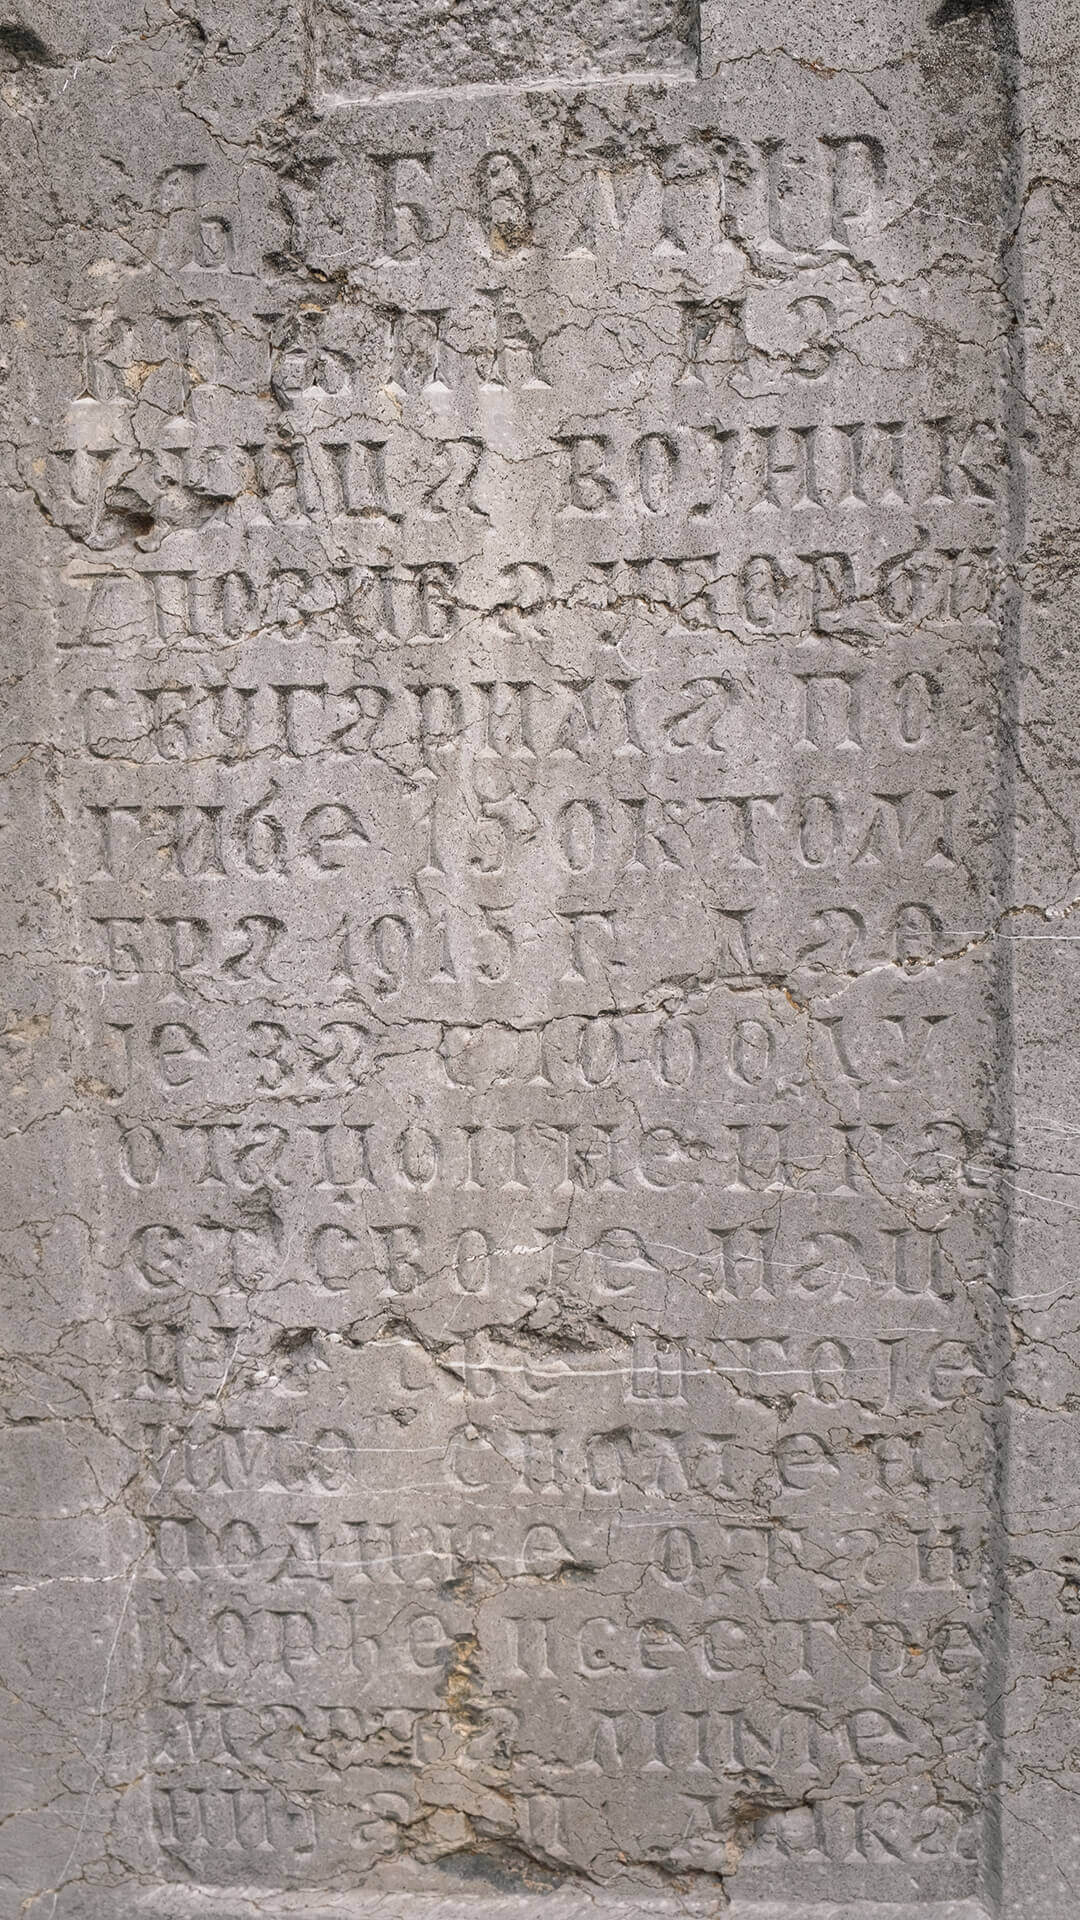 ЉУБОМИР
КРЏИЋ ИЗ
УЖИЦА ВОЈНИК
1 ПОЗИВА У БОРБИ
С БУГАРИМА ПО
ГИБЕ 15 ОКТОМ
БРА 1915 Г ДАО
ЈЕ ЗА СЛОБОДУ
ОТАЏБИНЕ И РА
СТ СВОЈЕ НАЦ
ИМА СПОМЕН
ПОДИЖЕ ОТАЦ
ЂОРЂЕ И СЕСТРЕ
МАРТА МИЛЕ
НИЈА И ДАНКА